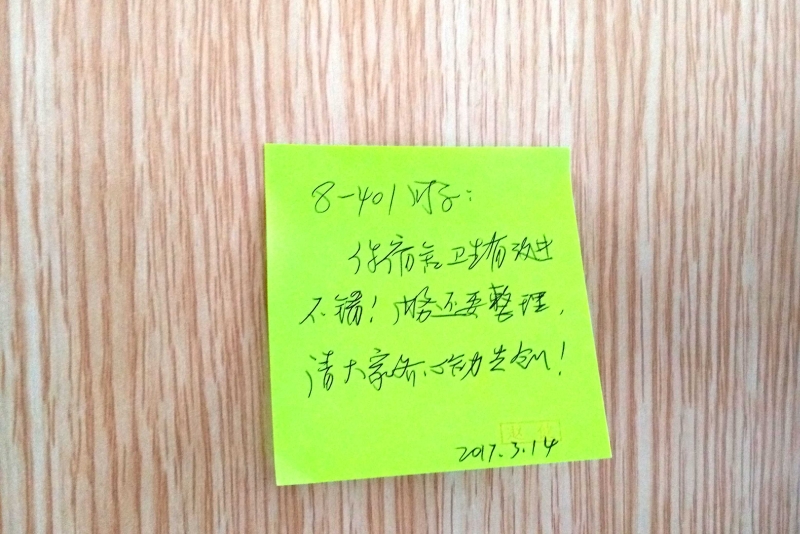 8-401 同学:
你宿舍卫生有改进
不错! 内务还要整理,
请大家齐心
2017.3.14